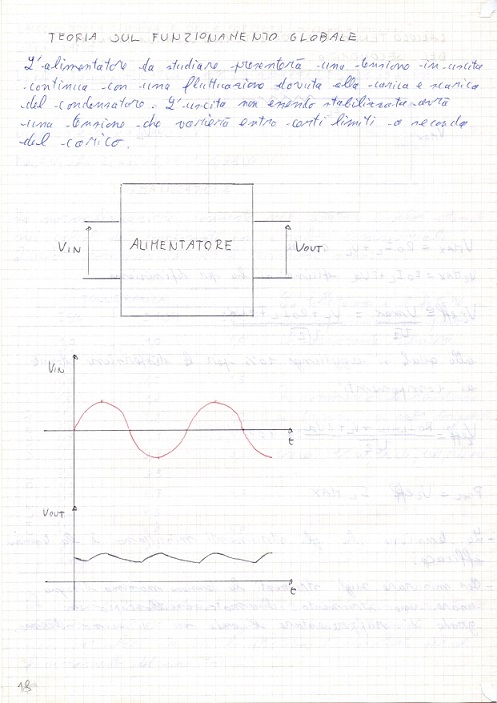 TEORIA SUL FUNZIONAMENTO GLOBALE
L'alimentatore da studiare presenterà una tensione in uscita
continua con una fluttuazione dovuta alla carica e scarica
del condensatore. L'uscita non essendo stabilizzata avrà
una tensione che varierà entro certi limiti a seconda
del carico.
VIN
ALIMENTATORE
VOUT
VIN
t
VOUT
t
18